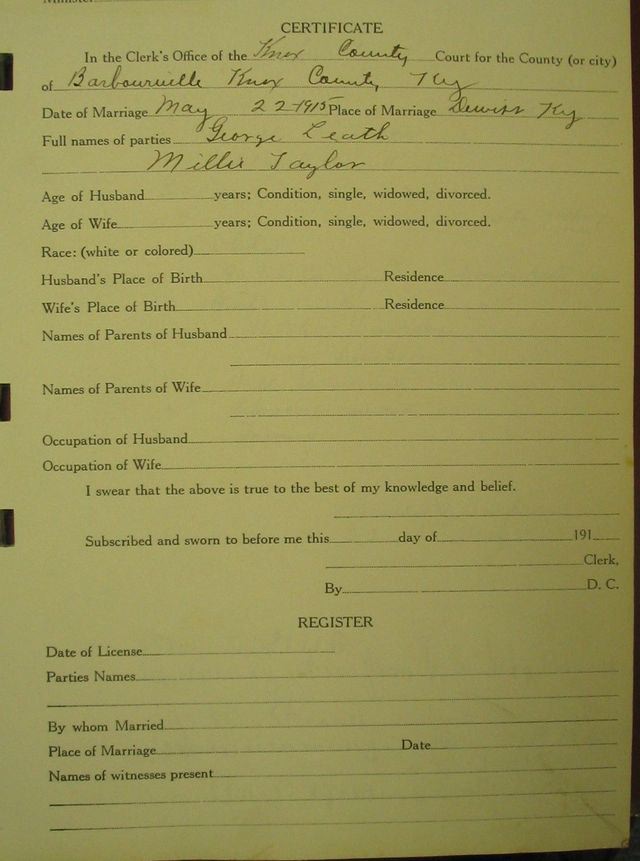 CERTIFICATE
In the Clerk's Office of the Knox County Court for the County (or city)
of Barbourville Knox County, Ky
Date of Marriage May 22-1915 Place of Marriage Dewitt Ky
Full names of parties George Leath
Millie Taylor
Age of Husband years; Condition, single, widowed, divorced.
Age of Wife years; Condition, single, widowed, divorced.
Race: (white or colored)
Husband's Place of Birth Residence
Wife's Place of Birth Residence
Names of Parents of Husband
Names of Parents of Wife
Occupation of Husband
Occupation of Wife
I swear that the above is true to the best of my knowledge and belief.
Subscribed and sworn to before me this day of 191
Clerk,
By D. C.
REGISTER
Date of License
Parties Names
By whom Married
Place of Marriage Date
Names of witnesses present